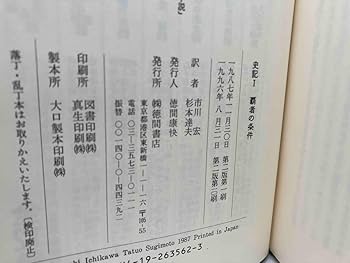 説）
史記Ⅰ 覇者の条件
一九八七年一一月三〇日 第二版第一刷
一九九六年 八月三一日 第二版二刷
訳者 市川 宏
杉本達夫
発行人 徳間康快
発行所 ㈱徳間書店
東京都港区東新橋一-一-一六 〒105-55
電話 〇三-三五七三-〇一一一
振替 〇〇一四〇-〇-四四三九二
印刷所 図書印刷㈱
真生印刷㈱
製本所 大口製本印刷㈱
落丁・乱丁本はお取りかえいたします。〔検印廃止〕
Ichikawa Tatuo Sugimoto 1987 Printed in Japan
-19-263562-3